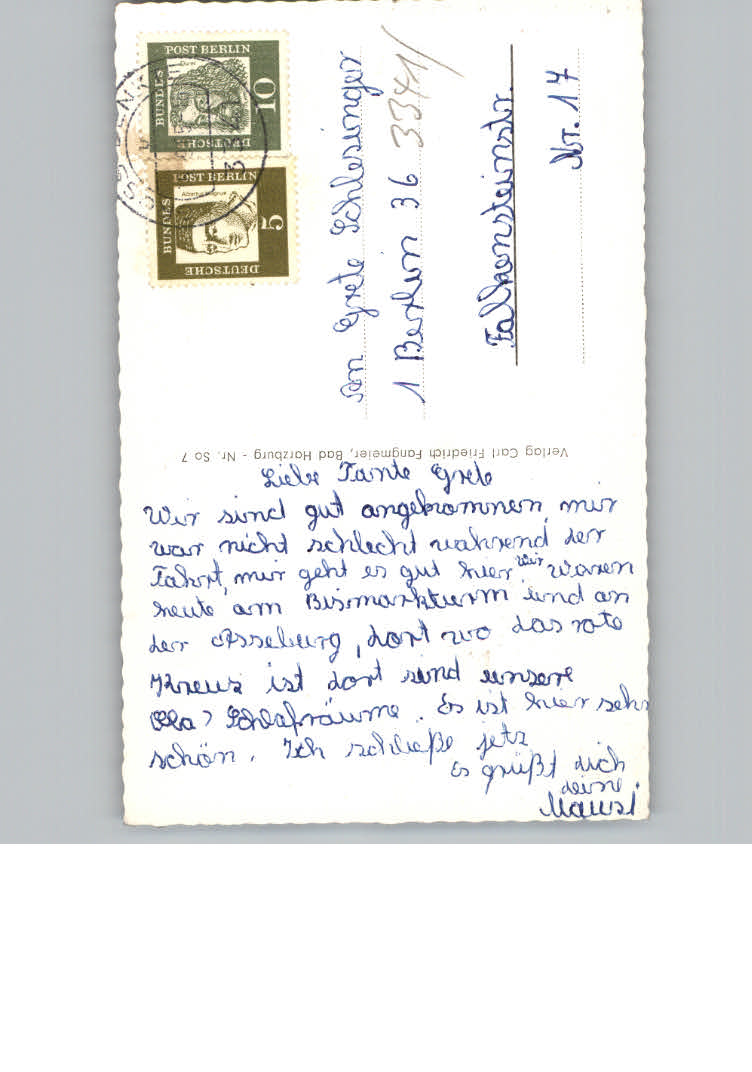 DEUTSCHE BUNDESPOST BERLIN
Dürer
10
DEUTSCHE BUNDESPOST BERLIN
Albertus Magnus
5
An Grete Schlesinger
1 Berlin 36 3341/
Falkensteinstr.
Nr. 17
Verlag Carl Friedrich Fangmeier, Bad Harzburg - Nr. So 7
Liebe Tante Grete
Wir sind gut angekommen, mir
war nicht schlecht während der
Fahrt, mir geht es gut hier wir waren
heute am Bismarkturm und an
der Asseburg, dort wo das rote
Kreuz ist dort sind unsere
Schlafräume. Es ist hier sehr
schön. Ich schließe jetz
Es grüßt dich
deine
Mausi